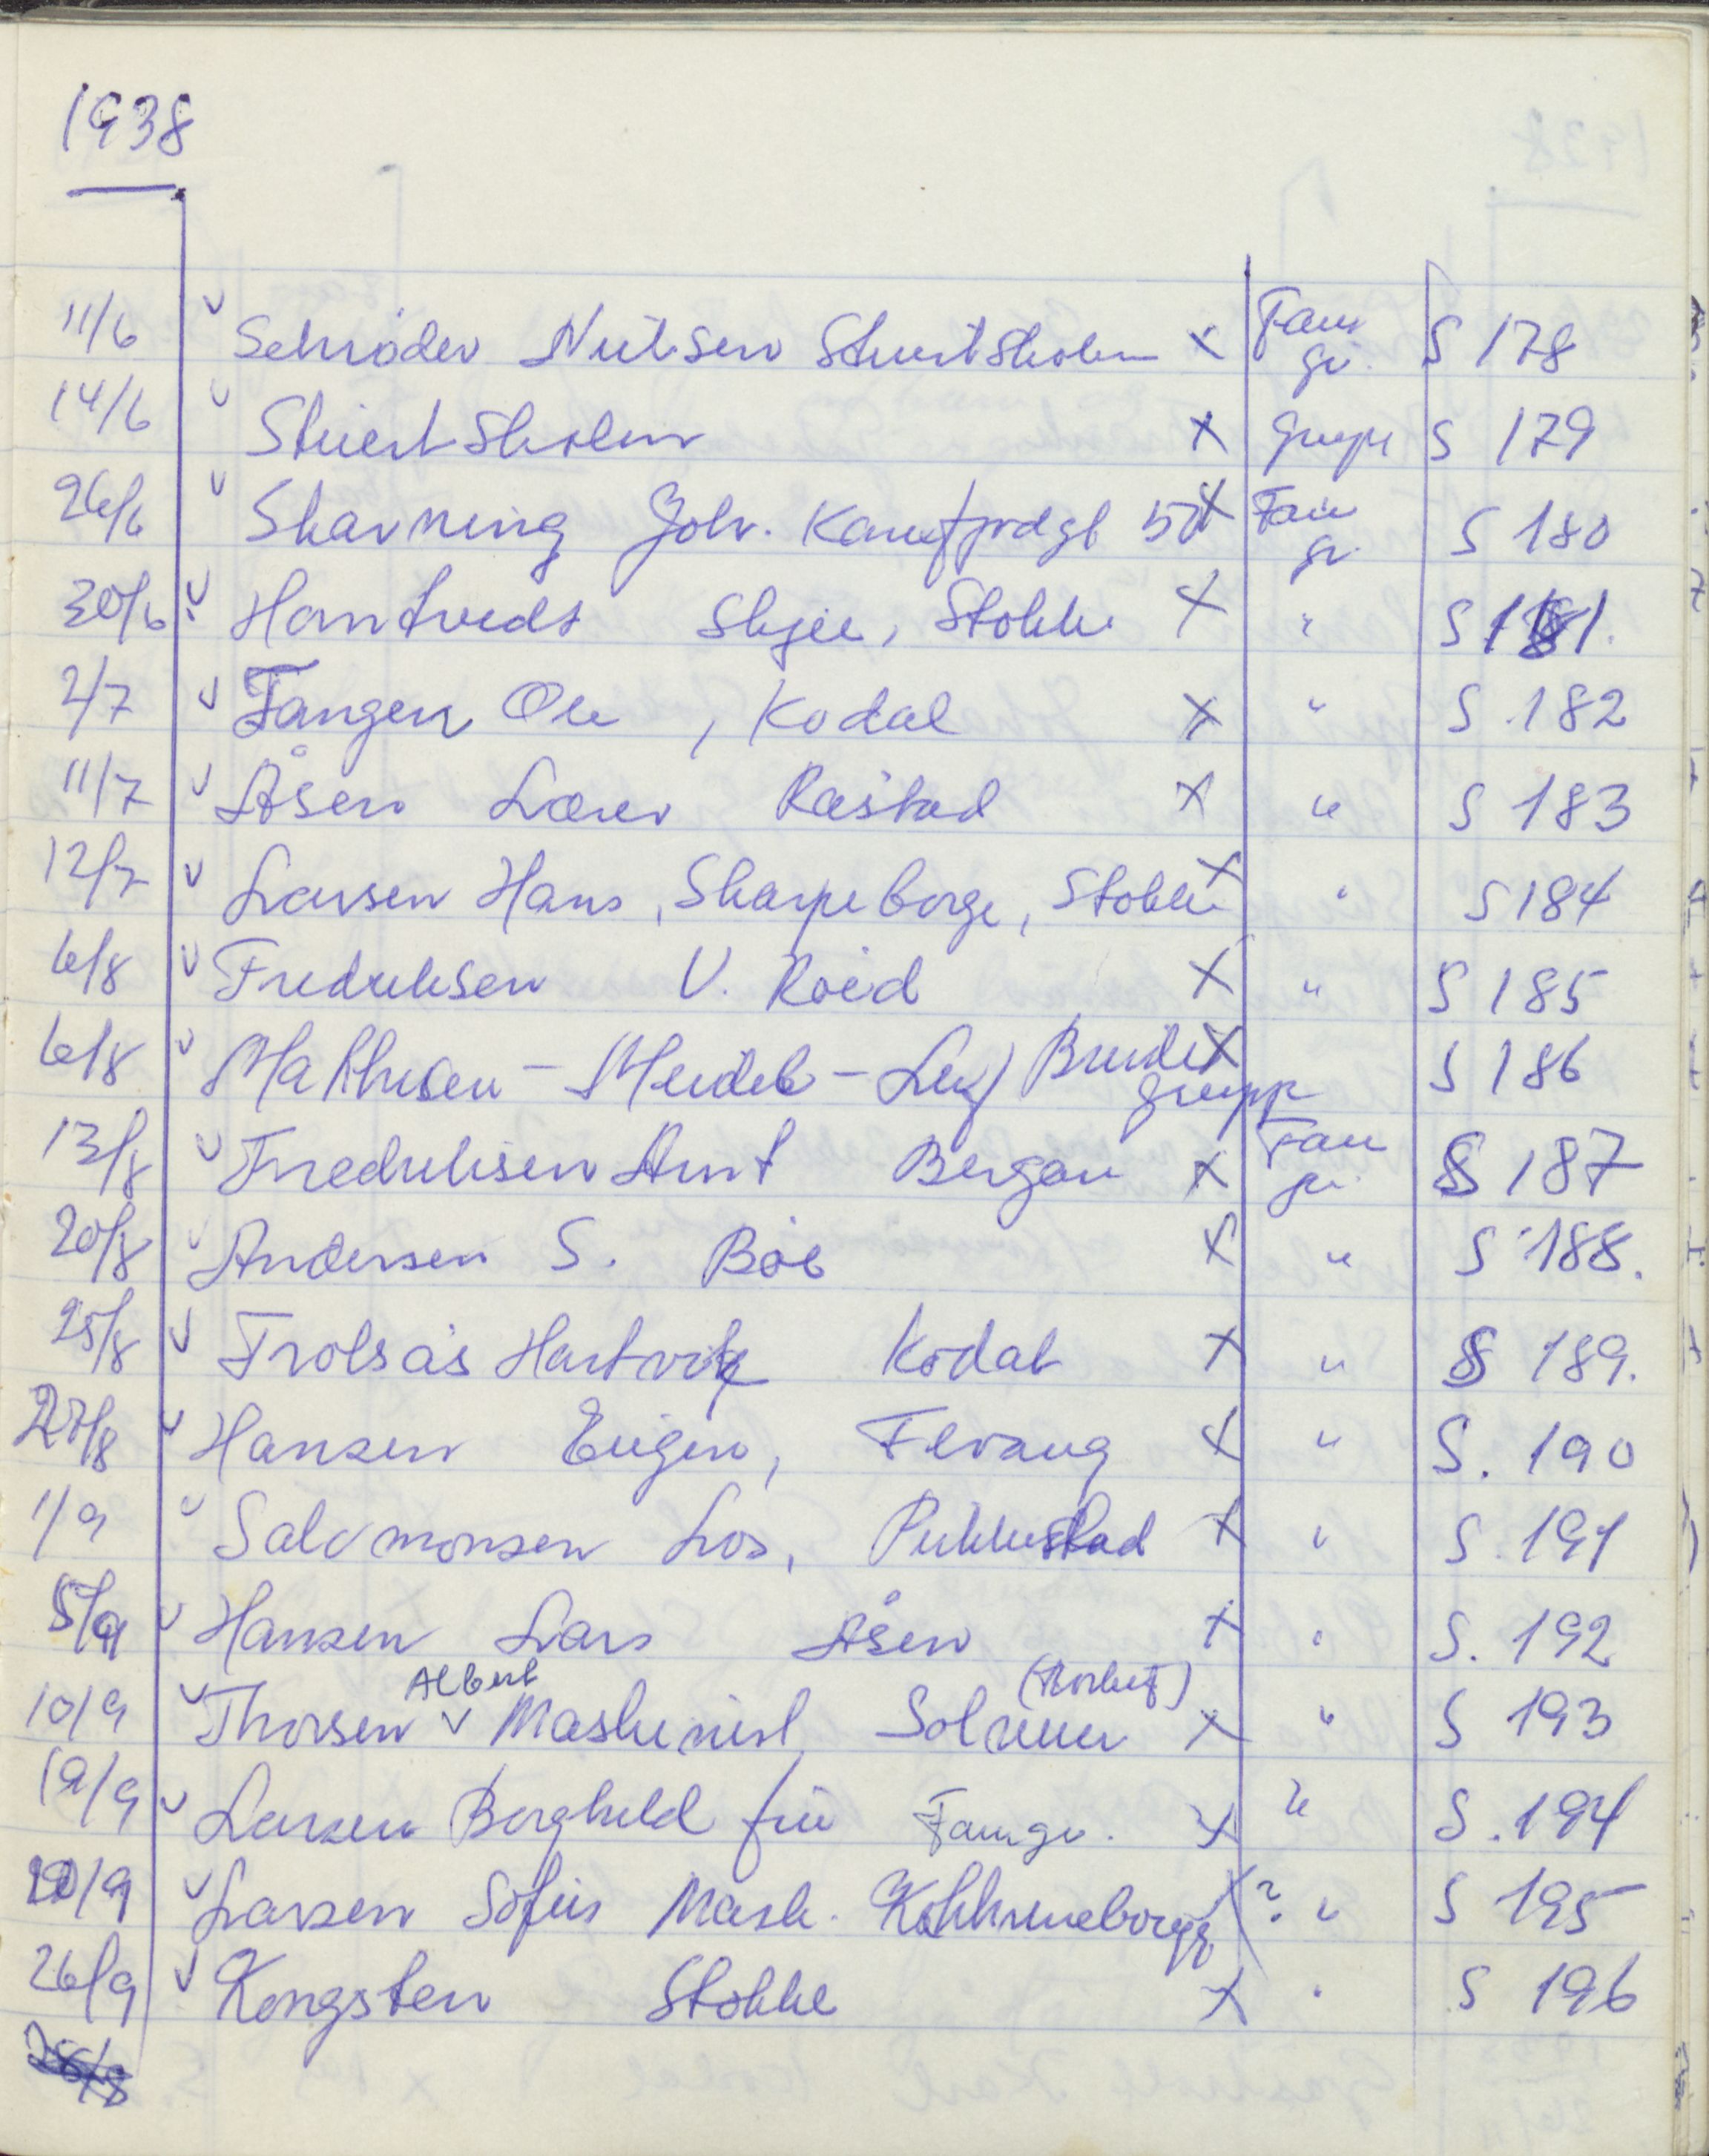 1938
11/6 v Schrøder Nielsen Stuertsholm x Fam gr. S 178
14/6 v Stuertsholm x gruppe S 179
26/6 v Skavning Joh. Kampfordgt 50 x Fam gr. S 180
30/6 v Hamtvedt Skjee, Stokke x " S 181.
2/7 v Fangen Ole, Kodal x " S 182
11/7 v Åsen Lærer Råstad x " S 183
12/7 v Larsen Hans, Skarpeborge, Stokke x " S 184
6/8 v Fredriksen V. Roed x " S 185
6/8 v Mathisen - Meidel - Leif Brude gruppe x S 186
13/8 v Fredriksen Arnt Bergan x Fam gr. S 187
20/8 v Andersen S. Bøe x " S 188.
25/8 v Trolsås Hartvig Kodal x " S 189.
27/8 v Hansen Eugen, Flevang x " S. 190
1/9 v Salomonsen Los, Pukkestad x " S. 191
5/9 v Hansen Lars Åsen x " S. 192
10/9 v Thorsen v Albert Maskinist Solvenn (Thorleif) x " S 193
19/9 v Larsen Borghild frü Famgr. x " S. 194
20/9 v Larsen Sofus Mask. x ? " S 195
26/9 v Kongsten Stokke x " S 196